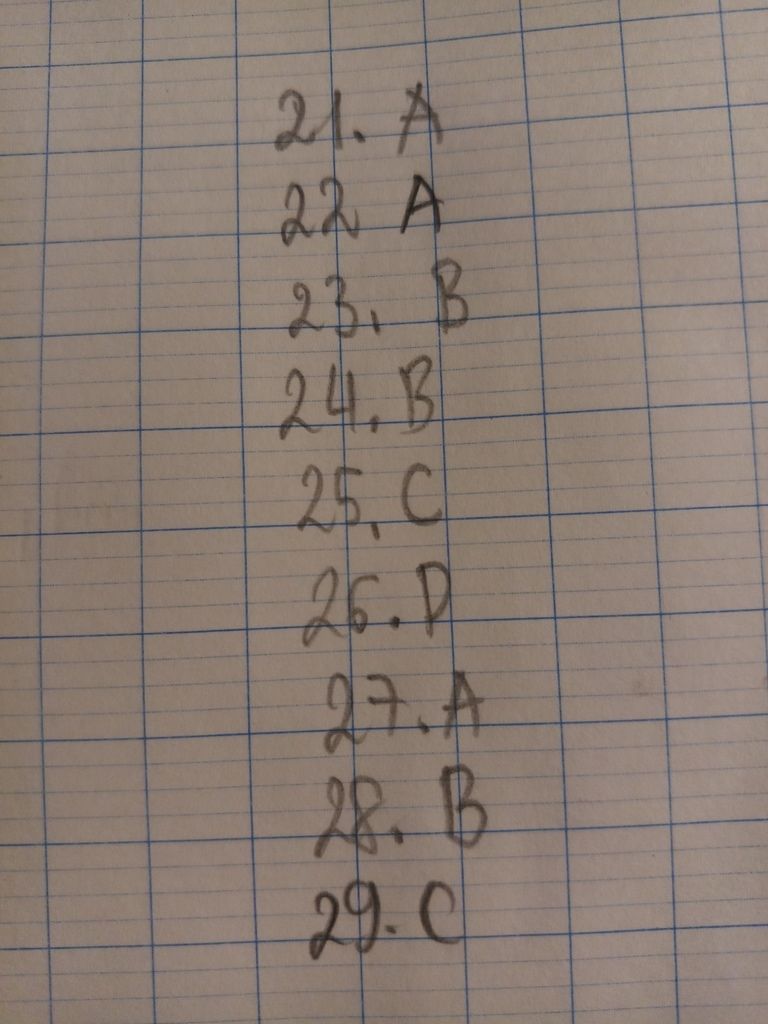 21. A
22 A
23. B
24. B
25. C
26. D
27. A
28. B
29. C